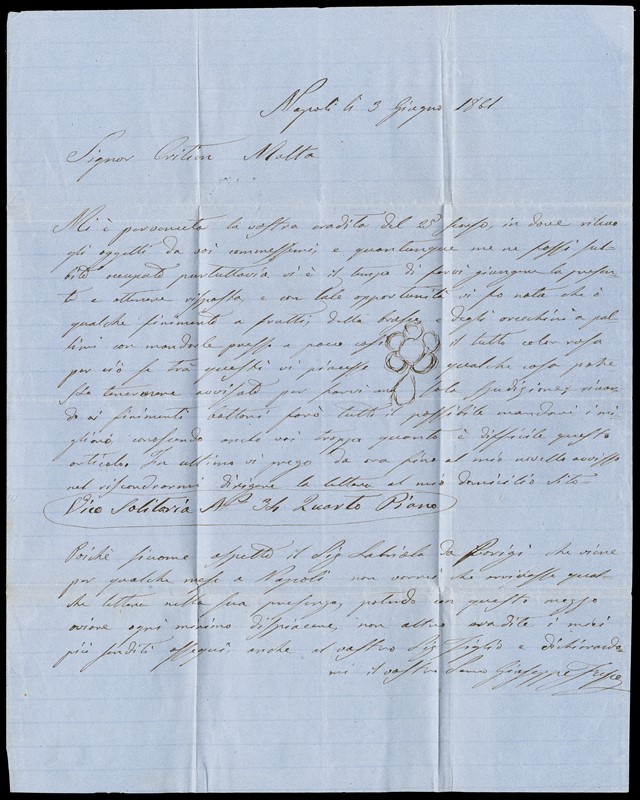 Napoli li 3 Giugno 1861
Signor Critien Malta
Mi è pervenuta la vostra gradita del 25 scorso, in dove rilevo
gli oggetti da voi commessimi, e quantunque me ne fossi su-
bito occupato purtuttavia vi è il tempo di farvi giungere la presen-
te e ottenere risposta, e con tale opportunità vi fo nota che è
qualche finimento a frutti, della e degli orecchini a pal-
lini con mandorle presso a poco così il tutto color rosa
per ciò se tra questi vi piacesse qualche cosa potre-
ste tenermene avvisato per farvi una sola spedizione, riguar-
do ai finimenti bottoni farò tutto il possibile mandarvi i mi-
gliori conoscendo anche voi troppo quanto è difficile questo
articolo. In ultimo vi prego da ora fino al mio novello avviso
nel riscondrarmi dirigere le lettere al mio domicilio sito-
Vico Solitaria N.º 34 Quarto Piano
Poiché siccome aspetto il Sig. Labriola da Parigi che viene
per qualche mese a Napoli non vorrei che arrivasse qual-
che lettera nella sua presenza, potendo con questo mezzo
ogni minimo dispiacere, non altro gradite i miei
più sentiti ossequi, anche al vostro Sig. Figlio e dichiarando-
mi il vostro Servo Giuseppe